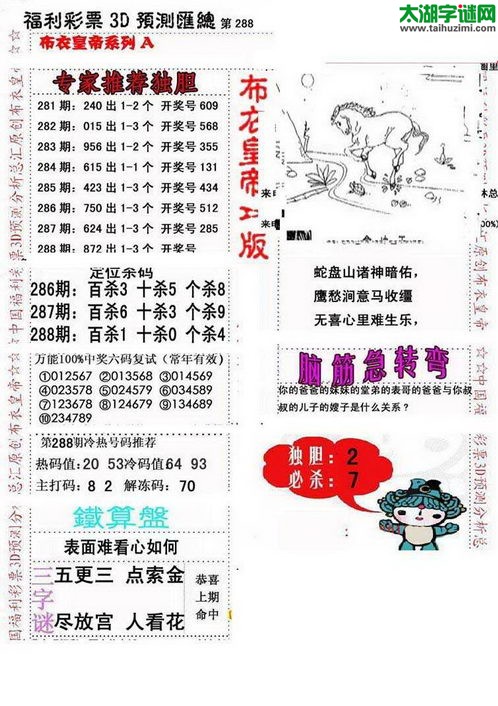 太湖字谜网
www.taihuzimi.com
福利彩票3D預測匯總 第288
布衣皇帝系列A
专家推荐独胆
281期：240出1-2个 开奖号609
282期：015出1-3个 开奖号568
283期：956出1-2个 开奖号355
284期：615出1-1个 开奖号131
285期：423出1-3个 开奖号434
286期：750出1-3个 开奖号512
287期：624出1-3个 开奖号285
288期：872出1-3个 开奖号
定位杀码
286期：百杀3 十杀5 个杀8
287期：百杀6 十杀3 个杀9
288期：百杀1 十杀0 个杀4
万能100%中奖六码复试（常年有效）
①012567 ②013568 ③014569
④023578 ⑤024579 ⑥034589
⑦123678 ⑧124679 ⑨134689
⑩234789
第288期冷热号码推荐
热码值：20 53冷码值64 93
主打码：8 2 解冻码：70
鐵算盤
表面难看心如何
三字谜
五更三 点索金
尽放宫 人看花
恭喜
上期
命中
布衣皇帝
版
来电
蛇盘山诸神暗佑，
鹰愁涧意马收缰
无喜心里难生乐，
脑筋急转弯
你的爸爸的妹妹的堂弟的表哥的爸爸与你叔
叔的儿子的嫂子是什么关系？
独胆：2
必杀：7